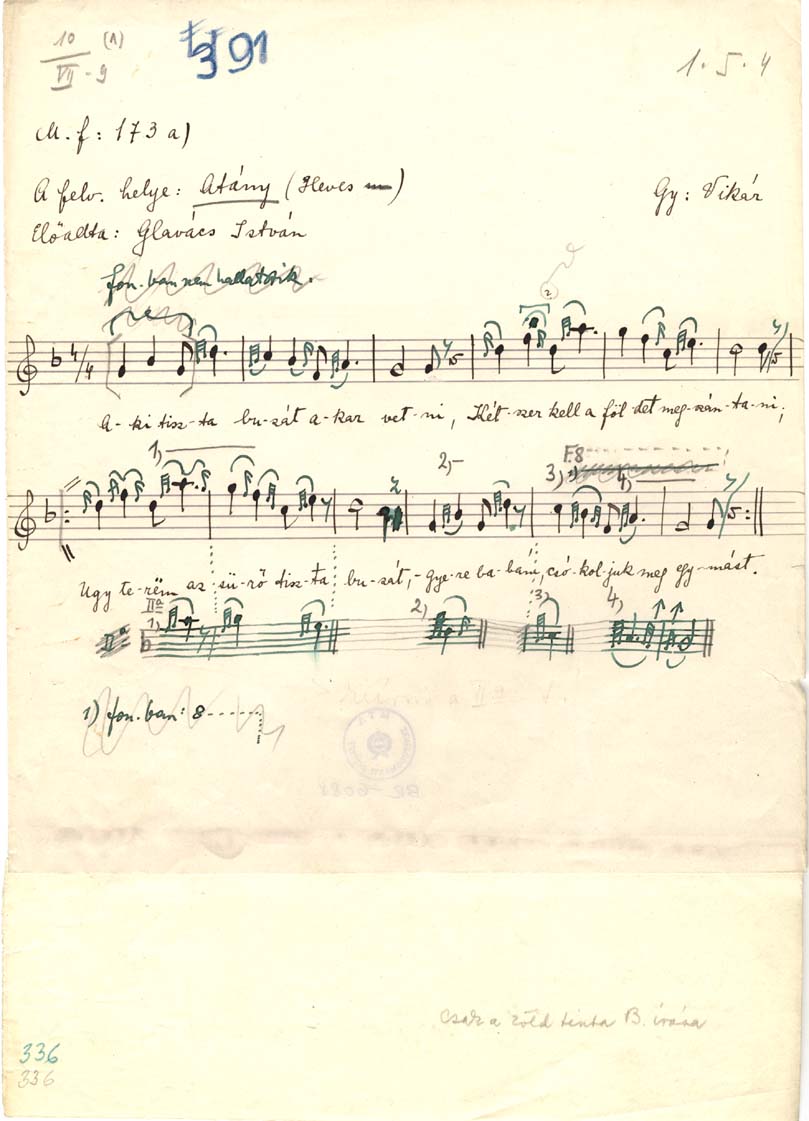 10 (1)
VII - 9
391
1. 5. 4
M. f: 173 a)
A felv. helye: Atány (Heves )
Gy: Vikár
Előadta: Glavács István
fon. ban nem hallatszik.
4/4
A-ki tisz-ta bu-zát a-kar vet-ni, Két-szer kell a föl-det meg-szán-ta-ni;
1)
2)
F.8
3) 4)
Ugy te-rëm az sü-rö tisz-ta bu-zát, Gye-re ba-bám, csó-kol-juk meg egy-mást.
IIa
1) 2) 3) 4)
IIa
1) fon. ban: 8
BR-6088
Csak a zöld tinta B. írása
336
336